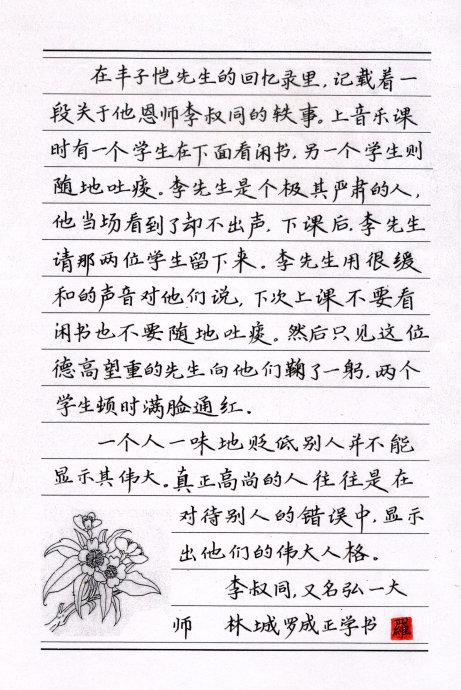 在丰子恺先生的回忆录里,记载着一
段关于他恩师李叔同的轶事。上音乐课
时有一个学生在下面看闲书,另一个学生则
随地吐痰。李先生是个极其严肃的人,
他当场看到了却不出声,下课后,李先生
请那两位学生留下来。李先生用很缓
和的声音对他们说,下次上课不要看
闲书也不要随地吐痰。然后只见这位
德高望重的先生向他们鞠了一躬,两个
学生顿时满脸通红.
一个人一味地贬低别人并不能
显示其伟大。真正高尚的人往往是在
对待别人的错误中,显示
出他们的伟大人格。
李叔同,又名弘一大
师 林城罗成正学书 羅